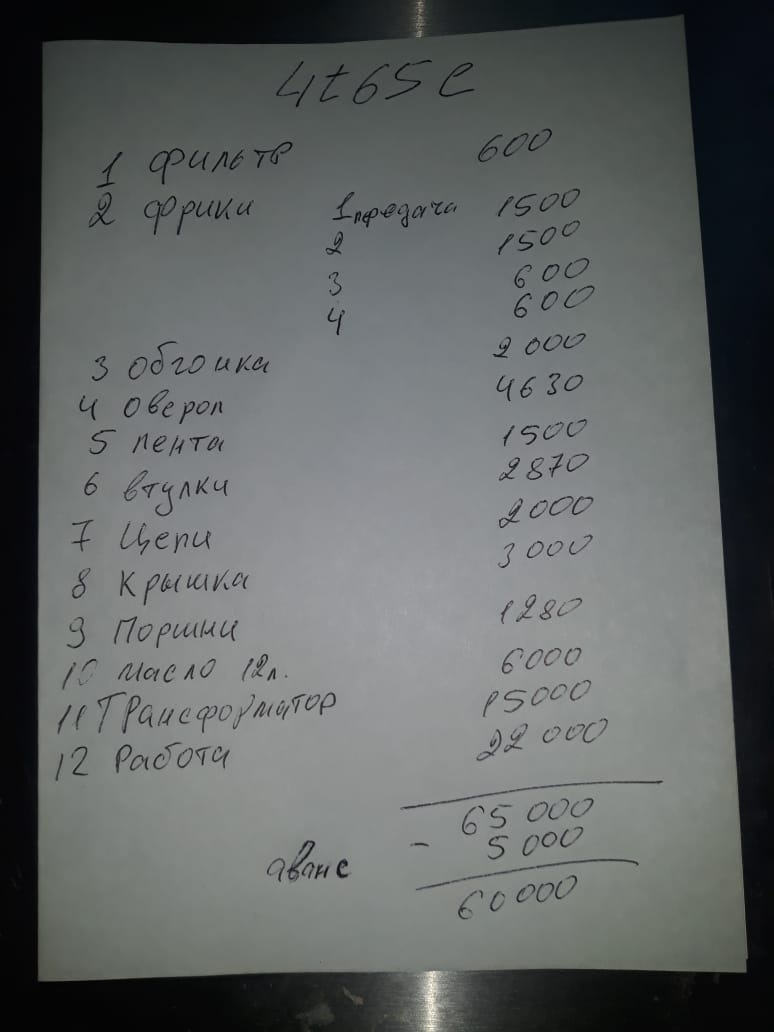 4t65e
1 фильтр 600
2 фрики 1передача 1500
2 1500
3 600
4 600
3 Обгонка 2000
4 Оверол 4630
5 лента 1500
6 втулки 2870
7 Цепи 2000
8 Крышка 3000
9 Поршни 1280
10 масло 12л. 6000
11 Трансформатор 15000
12 Работа 22 000
65 000
аванс - 5 000
60 000